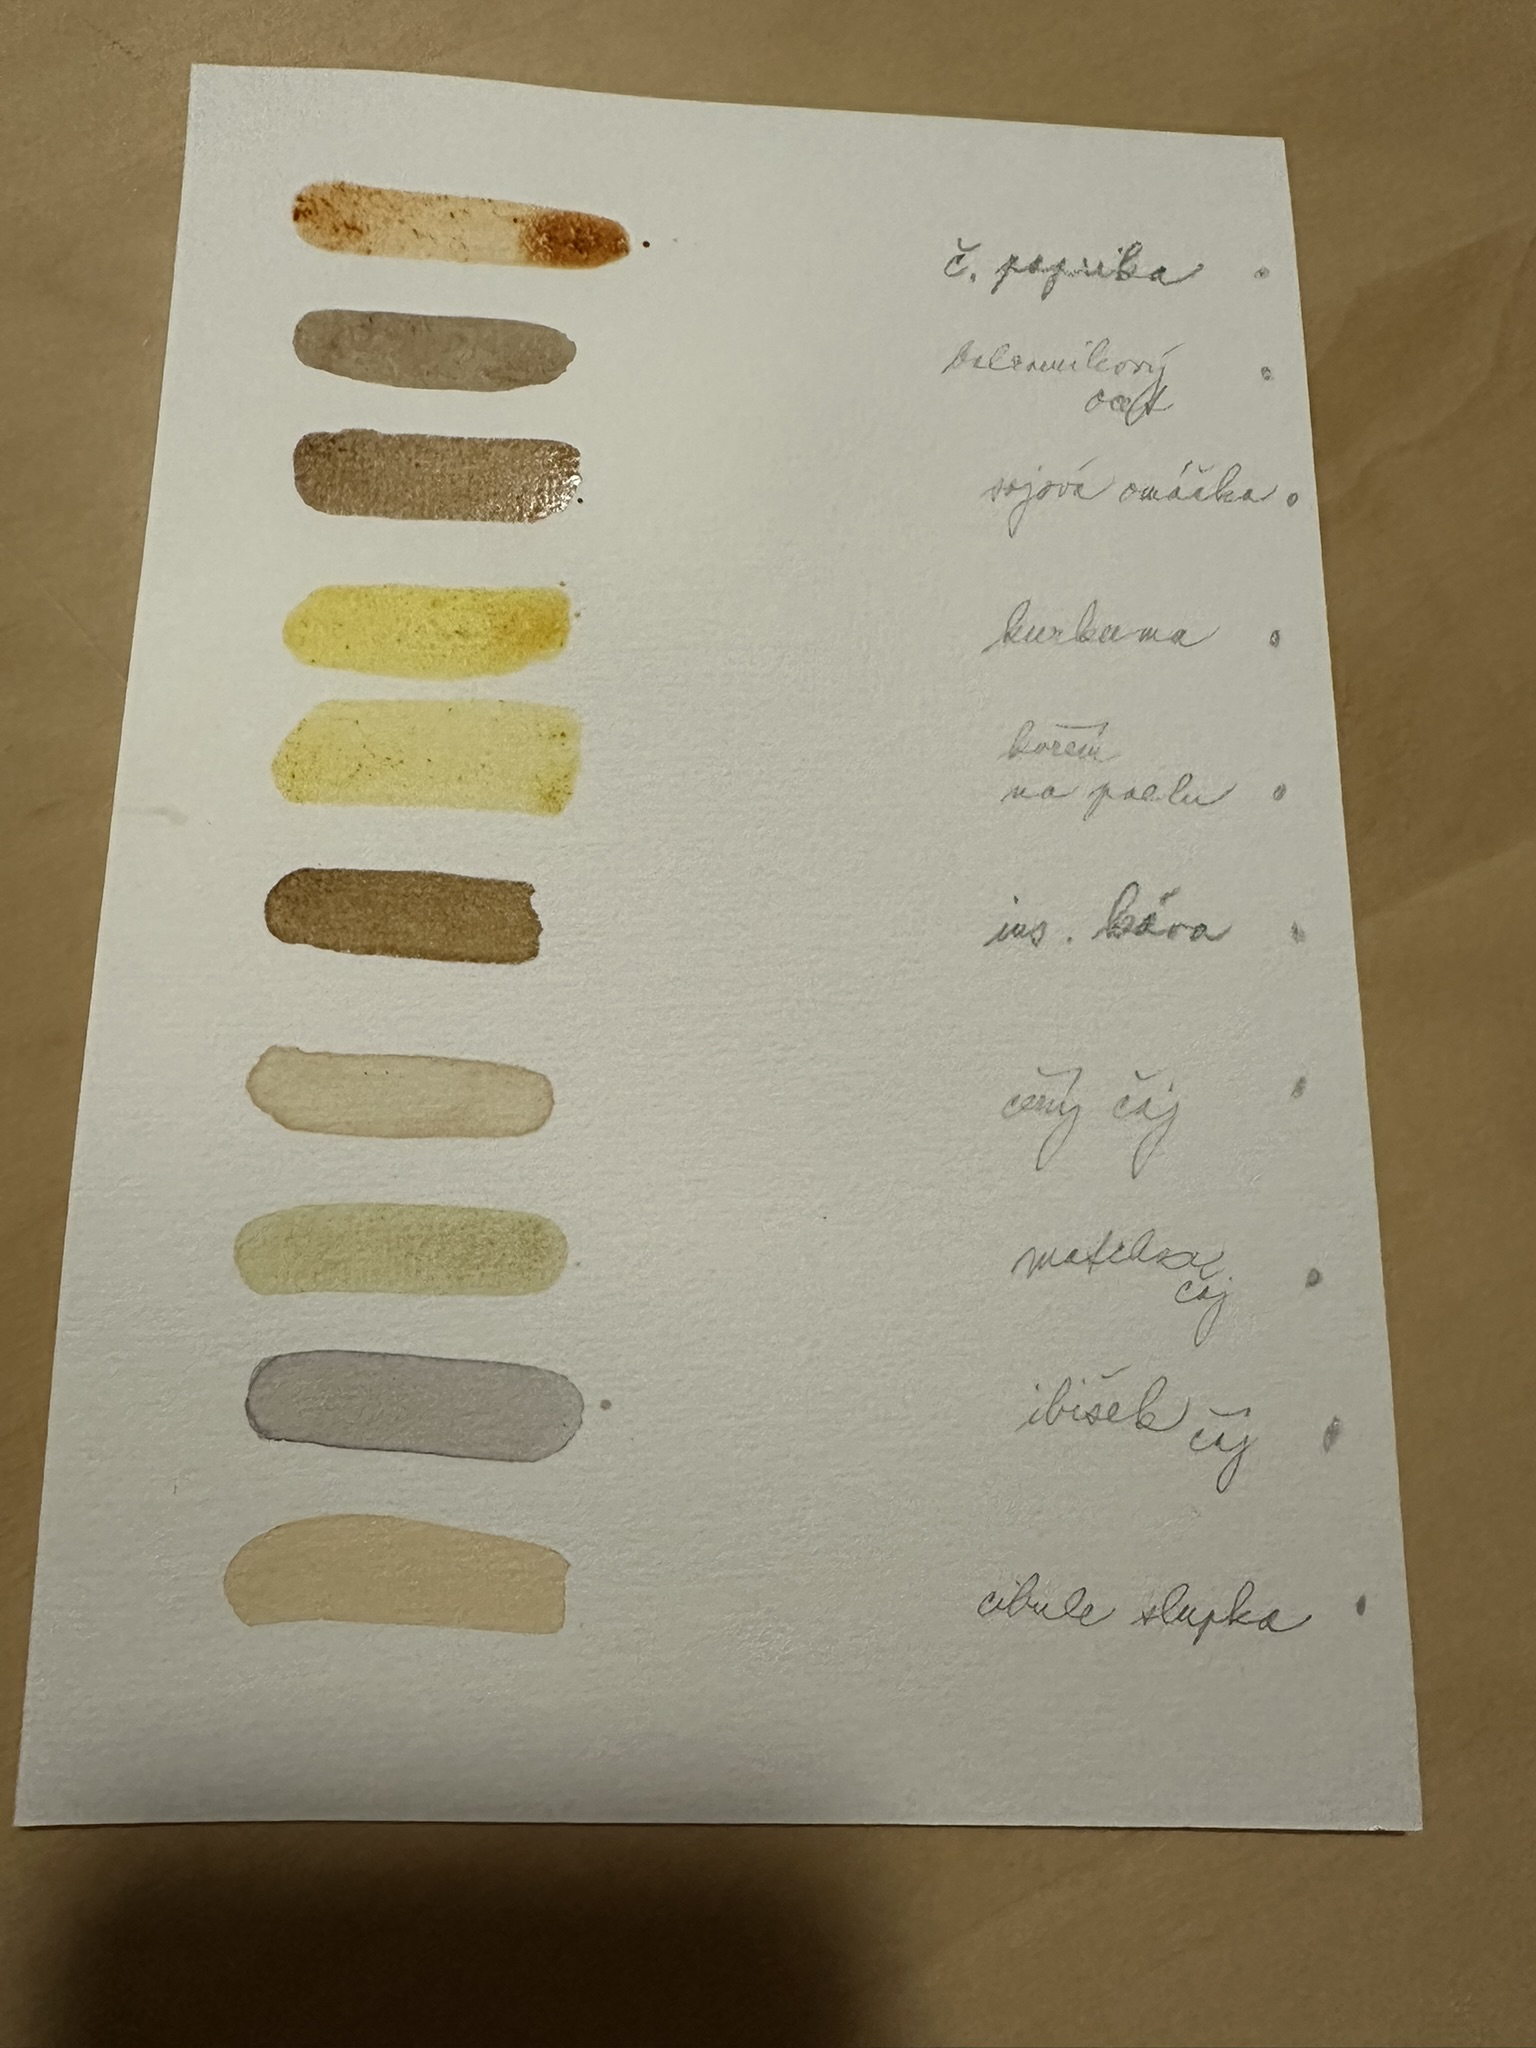 č. paprika
balsamikový
ocet
sojová omáčka
kurkuma
koření
na paelu
ins. káva
černý čaj
čaj
ibišek čaj
cibule slupka